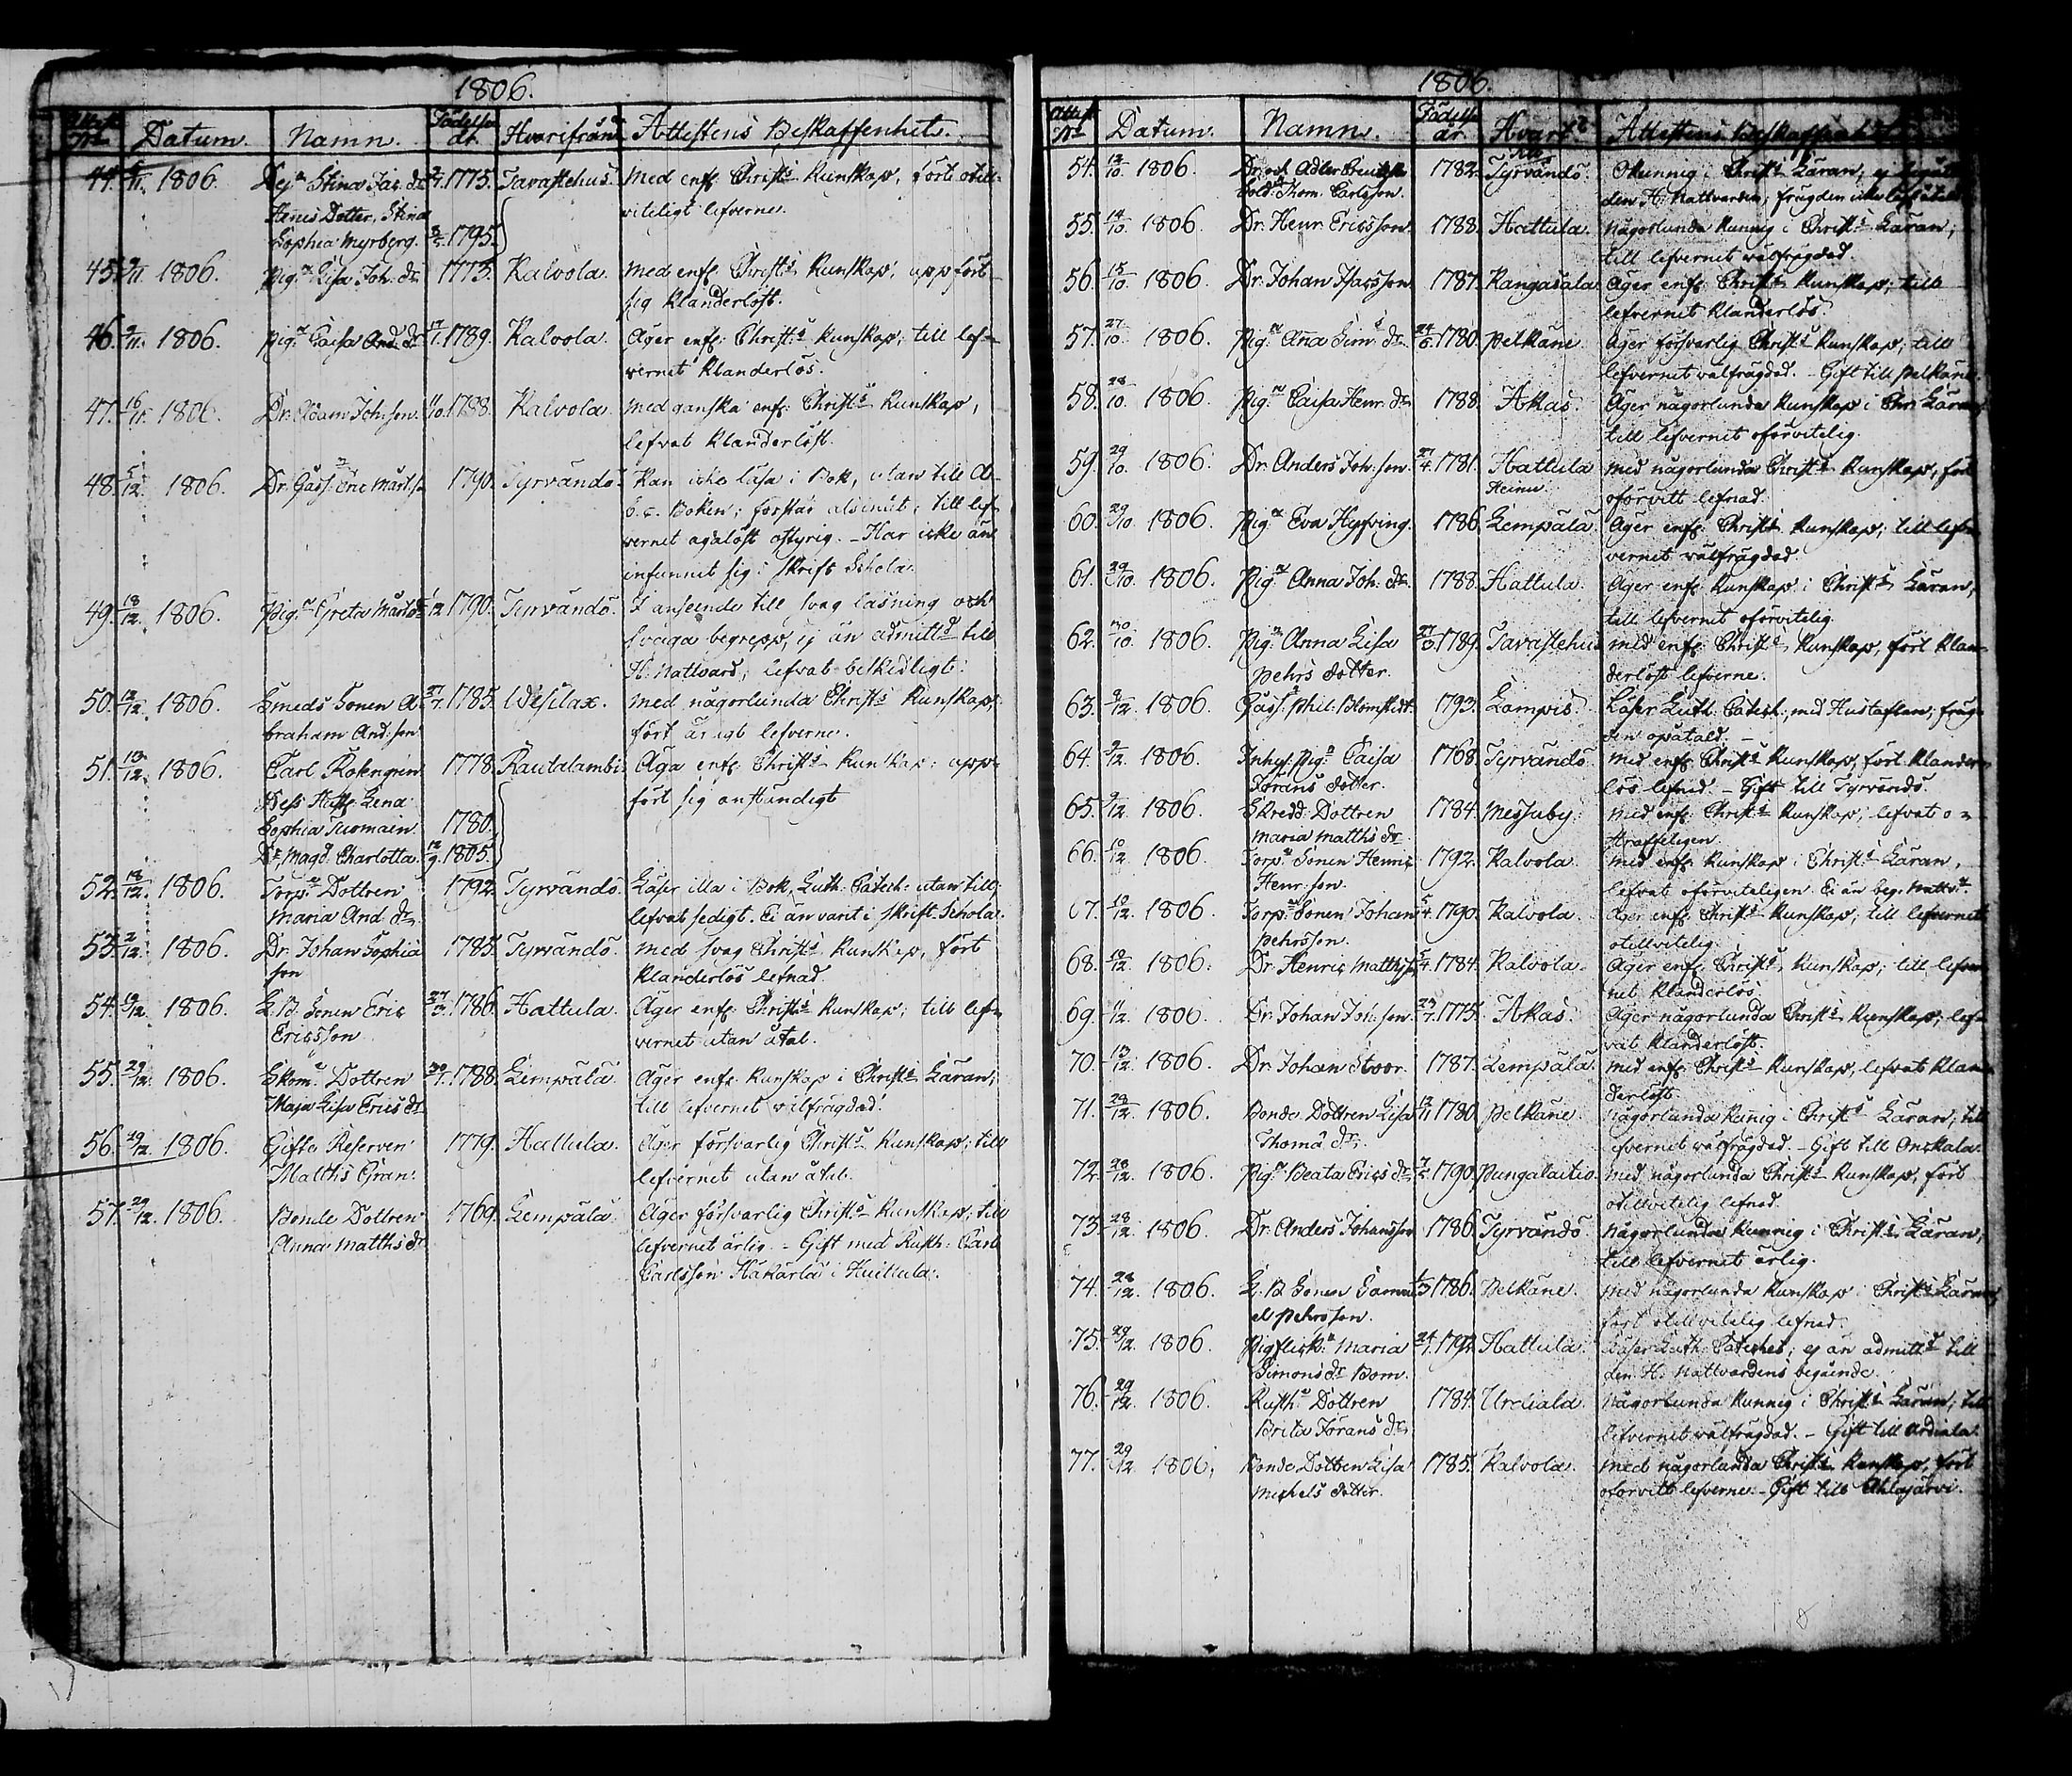 1806.
Attest Nr. Datum. Namn. Födelse år. Hvarifrån Attestens Beskaffenhet.
44. 1806. Stina Jac. dr 1775. Tavastehus. Med enf. Christ:s Kunskap, fört otill-
Hennes Dotter, Stina viteligt lefverne.
Sophia Myrberg. 1795.
45. 1806. Pig:n Lisa Joh. dr 1773. Kalvola. Med enf. Christ:s Kunskap, uppfört
sig klanderlöst.
46. 1806. Pig:n Caisa And. dr 1789. Kalvola. Äger enf: Christ:s Kunskap; till lef-
vernet klanderlös.
47. 16/11. 1806. Dr. Adam Joh:son. 1788. Kalvola. Med ganska enf: Christ:s Kunskap,
lefvat klanderlöst.
48. 5/12. 1806. Dr. Gåss. Eric Mårt.s. 1790. Tyrvändö. Kan icke läsa i Bok, utan till A.
b.c. Boken; förstår alsintet; till lef-
vernet agalöst ostyrig. - Har icke än
infunnit sig i Skrift Schola.
49. 18/12. 1806. Pig:n Greta Mårt.dr 1790. Tyrvändö. I anseende till svag läsning och
svaga begrepp, ej än admitt:d till
H: Nattvard; lefvat beskedligt.
50. 12/12. 1806. Smeds Sonen A- 27/7. 1785. Wesilax. Med någorlunda Christ:s Kunskap,
braham And:son fört ärligt lefverne.
51. 13/12. 1806. Carl Rokngren 1778. Rautalambi. Äga enf. Christ:s Kunskap; upp-
Dess Hust. Lena fört sig anständigt
Sophia Tuomain. 1780.
Dr. Magd. Charlotta. 12/9. 1805.
52. 18/12. 1806. Torp:e Dottren 1792. Tyrvändö. Läser illa i Bok, Luth: Catech: utan till;
Maria And. dr. lefvat sedigt. Ei än varit i Skrift Schola.
53. 2/12. 1806. Dr. Johan Sophiæ 1785. Tyrvändö. Med svag Christ:s Kunskap, fört
son klanderlös lefnad.
54. 1806. L.B. Sonen Eric 27/3. 1786. Hattula. Äger enf. Christ:s Kunskap; till lef-
Ericsson vernet utan åtal.
55. 29/12. 1806. Skom:e Dottren 1788. Lempälä. Äger enf. Kunskap i Christ:s Läran;
Maja Lisa Erics dr till lefvernet välfrägdad.
56. 29/12. 1806. Gifte Reserven 1779. Hattula. Äger försvarlig Christ:s Kunskap; till
Matths Gran. lefvernet utan åtal.
57. 29/12. 1806. Bonde Dottren 1769. Lempälä. Äger försvarlig Christ:s Kunskap; till
Anna Matths dr lefvernet ärlig. - Gift med Rusth: Carl
Carlsson Hakarla i Huittula.
1806.
Attest Nr. Datum. Namn. Födelse år. Hvart Attestens Beskaffenhet.
54. 13/10. 1806. Dr. och Adler Creutzka 1782. Tyrvändö. Okunnig i Christ:s Läran, ej
Sold. Thom. Carlsson. den H. Nattvarden; frägden icke
55. 14/10. 1806. Dr. Henr. Ericsson. 1788. Hattula. Någorlunda kunnig i Christ:s Läran;
till lefvernet välfrägdad.
56. 15/10. 1806. Dr. Johan Isacsson 1787. Kangasala. Äger enf. Christ:s Kunskap; till
lefvernet klanderlös.
57. 27/10. 1806. Pig:n Anna Sim: dr. 1780. Pelkäne. Äger försvarlig Christ:s Kunskap; till
lefvernet välfrägdad. - Gift till Pelkäne.
58. 28/10. 1806. Pig:n Caisa Henr. dr 1788. Akas. Äger någorlunda Kunskap i Chr. Läran;
till lefvernet oförvitelig.
59. 29/10. 1806. Dr. Anders Joh:son. 27/4. 1781. Hattula Med någorlunda Christ:s Kunskap, fört
oförvitt lefnad.
60. 29/10. 1806. Pig:n Eva Hypfving. 1786. Lempälä. Äger enf. Christ:s Kunskap; till lef-
vernet välfrägdad
61. 29/10. 1806. Pig:n Anna Joh. dr. 1788. Hattula. Äger enf. Kunskap i Christ:s Läran,
till lefvernet oförvitelig.
62. 30/10. 1806. Pig:n Anna Lisa 1789. Tavastehus Med enf. Christ:s Kunskap, fört klan-
Pehrs dotter. derlöst lefverne.
63. 1806. Gåss: Phil: Blomstedt. 1793. Lampis. Läser Luth: Catech:, med Hustaflan; fräg-
den opåtald.
64. 1806. Inhys. Pig:n Caisa 1768. Tyrvändö. Med enf. Christ:s Kunskap, fört klander-
Jörans dotter. lös lefnad. - Gift till Tyrvändö.
65. 9/12. 1806. Skredd. Dottren 1784. Messuby. Med enf. Christ:s Kunskap, lefvat o-
Maria Matths dr straffeligen.
66. 10/12. 1806. Torp:e Sonen Henric 1792. Kalvola. Med enf. Kunskap i Christ:s Läran,
Henr:son. lefvat oförviteligen. Ei än beg. Nattv:d.
67. 10/12. 1806. Torp:e Sonen Johan 1790. Kalvola. Äger enf. Christ:s Kunskap; till lefvernet
Pehrsson. otillvitelig.
68. 10/12. 1806. Dr. Henric Matthss. 1784. Kalvola. Äger enf. Christ:s Kunskap; till lefver-
net klanderlös.
69. 11/12. 1806. Dr. Johan Joh:son. 23/7. 1775. Akas. Äger någorlunda Christ:s Kunskap; lef-
vat klanderlöst.
70. 13/12. 1806. Dr. Johan Stoor. 1787. Lempälä. Med enf. Christ:s Kunskap, lefvat klan-
derlöst.
71. 1806. Bonde Dottren Lisa 1780. Pelkäne. Någorlunda kunnig i Christ:s Läran; till
Thomæ dr. lefvernet välfrägdad. - Gift till Onskala.
72. 28/12. 1806. Pig:n Beata Erics dr. 1790. Pungalaitio. Med någorlunda Christ:s Kunskap, fört
otillvitelig lefnad.
73. 28/12. 1806. Dr. Anders Johansson 1786. Tyrvändö. Någorlunda kunnig i Christ:s Läran,
till lefvernet ärlig.
74. 28/12. 1806. L.B. Sonen Samu- 1786. Pelkäne. Med någorlunda Kunskap i Christ:s Läran,
el Pehrsson. fört otillvitelig lefnad.
75. 29/12. 1806. Pigflick:n Maria 1792. Hattula. Läser Luth: Catches; ej än admitt:d till
Simons dr Bom. den H. Nattvardens begående.
76. 29/12. 1806. Rusth:e Dottren 1784. Urdiala. Någorlunda kunnig i Christ:s Läran; till
Brita Jörans dr. lefvernet välfrägdad. - Gift till Urdiala.
77. 29/12. 1806. Bonde Dottren Lisa 1785. Kalvola. Med någorlunda Christ:s Kunskap, fört
Michels dotter. oförvitt lefverne. - Gift till Ahlajärvi.